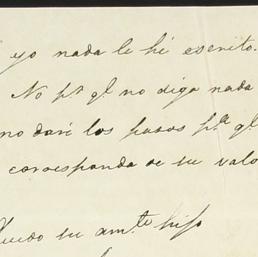 yo nada le hé escrito.
No pr. qe. no diga nada
no daré los pasos pa. qe.
corresponda de su valo
Quedo su amte. hijo